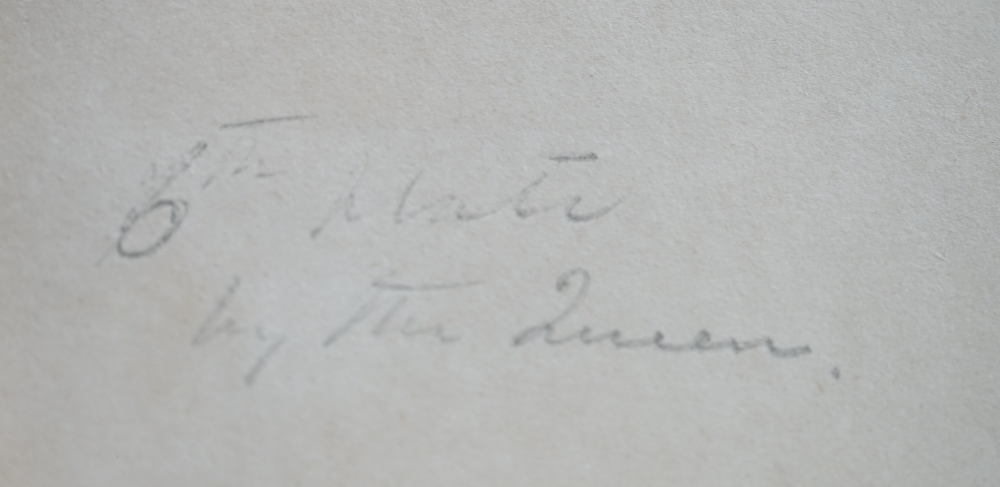 6th Plate
by the Queen.